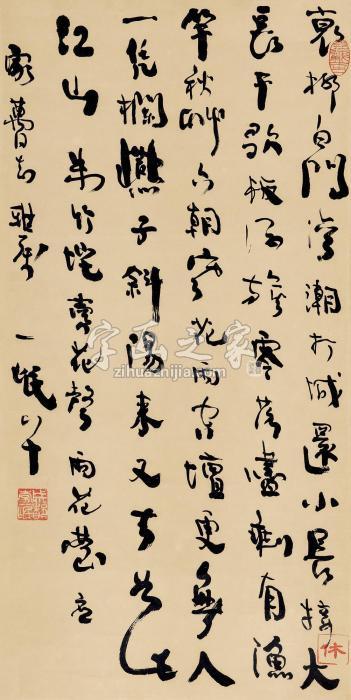 衰柳白門灣潮打城還小長接大
長干歌板酒旗零落盡剩有漁
竿秋草六朝寒花雨空壇更無人
一憑欄燕子斜陽來又去如此
江山 朱竹垞賣花聲 雨花臺
雅屬 一氓八十
字画之家
zihuazhijia.com